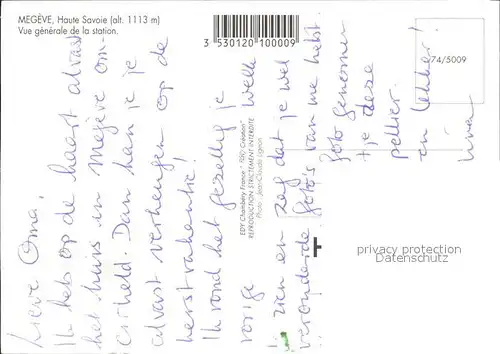 MEGÈVE, Haute Savoie (alt. 1113 m)
Vue générale de la station.
3 530120 100009
74/5009
EDY Chambéry France -
REPRODUCTION STRICTEMENT INTERDITE
Photo : Jean-Claude Ligeon
Lieve Oma,
Ik heb op de kaart alvast
het huis in Megève om-
cirkeld. Dan kan je je
alvast verheugen op de
kerstvakantie!
Ik vond het gezellig je
vorige week
te zien en zag dat je wel
veranderde foto's van me hebt.
foto genomen
tje deze
en lekker!
privacy protection
Datenschutz